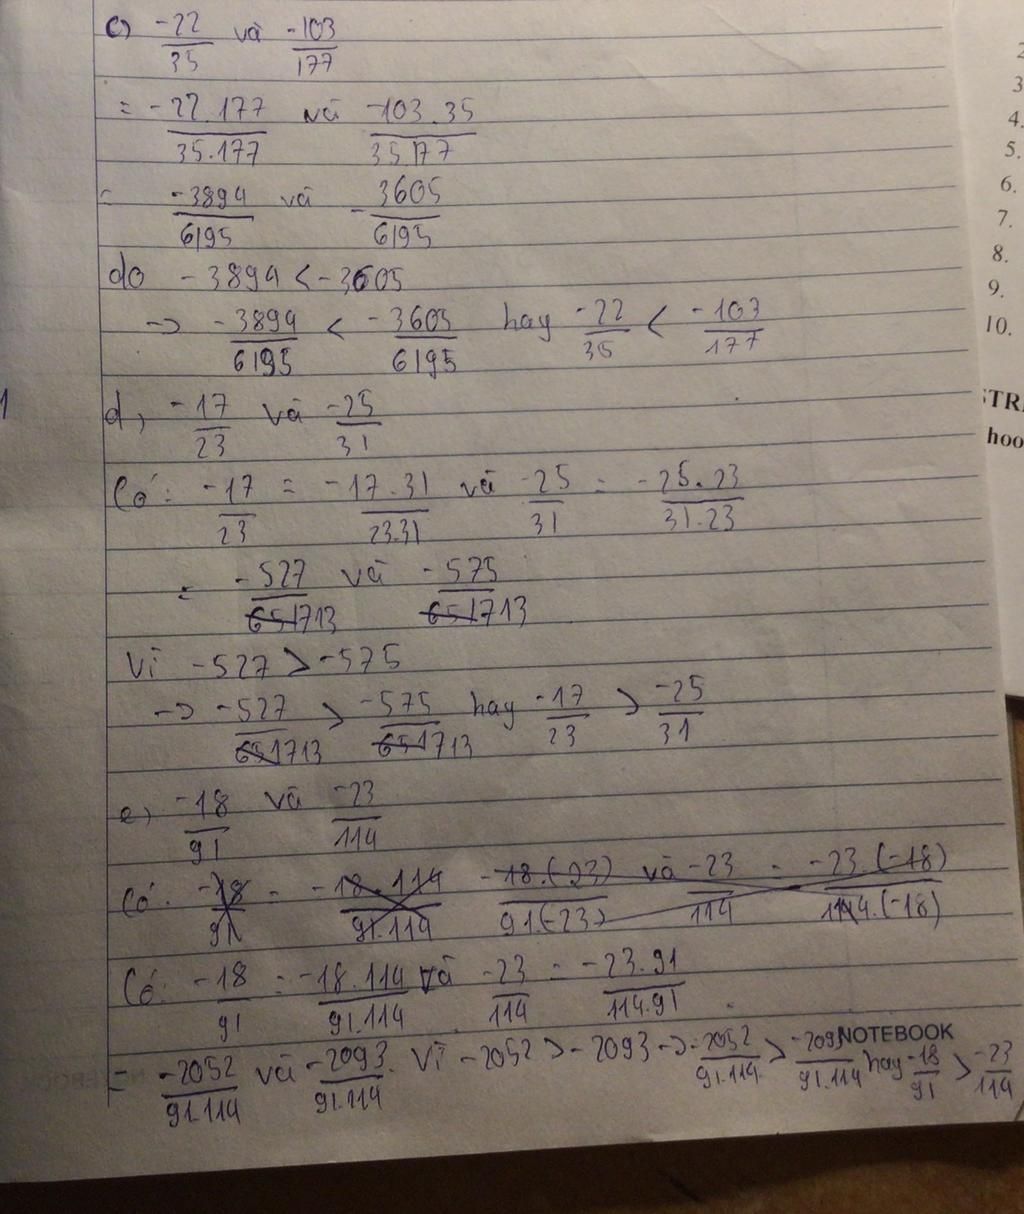 c) -22/35 và -103/177
= -22.177/35.177 và -103.35/35.177
= -3894/6195 và -3605/6195
do -3894 < -3605
-> -3894/6195 < -3605/6195 hay -22/35 < -103/177
d, -17/23 và -25/31
Có: -17/23 = -17.31/23.31 và -25/31 = -25.23/31.23
= -527/713 và -575/713
Vì -527 > -575
-> -527/713 > -575/713 hay -17/23 > -25/31
e, -18/91 và -23/114
Có: -18/91 = -18.114/91.114 -18.(-23)/91.(-23) và -23/114 = -23.(-18)/114.(-18)
Có: -18/91 = -18.114/91.114 và -23/114 = -23.91/114.91
= -2052/91.114 và -2093/91.114. Vì -2052 > -2093 -> -2052/91.114 > -2093/91.114 hay -18/91 > -23/114
NOTEBOOK
2
3
4.
5.
6.
7.
8.
9.
10.
STR
hoo
1